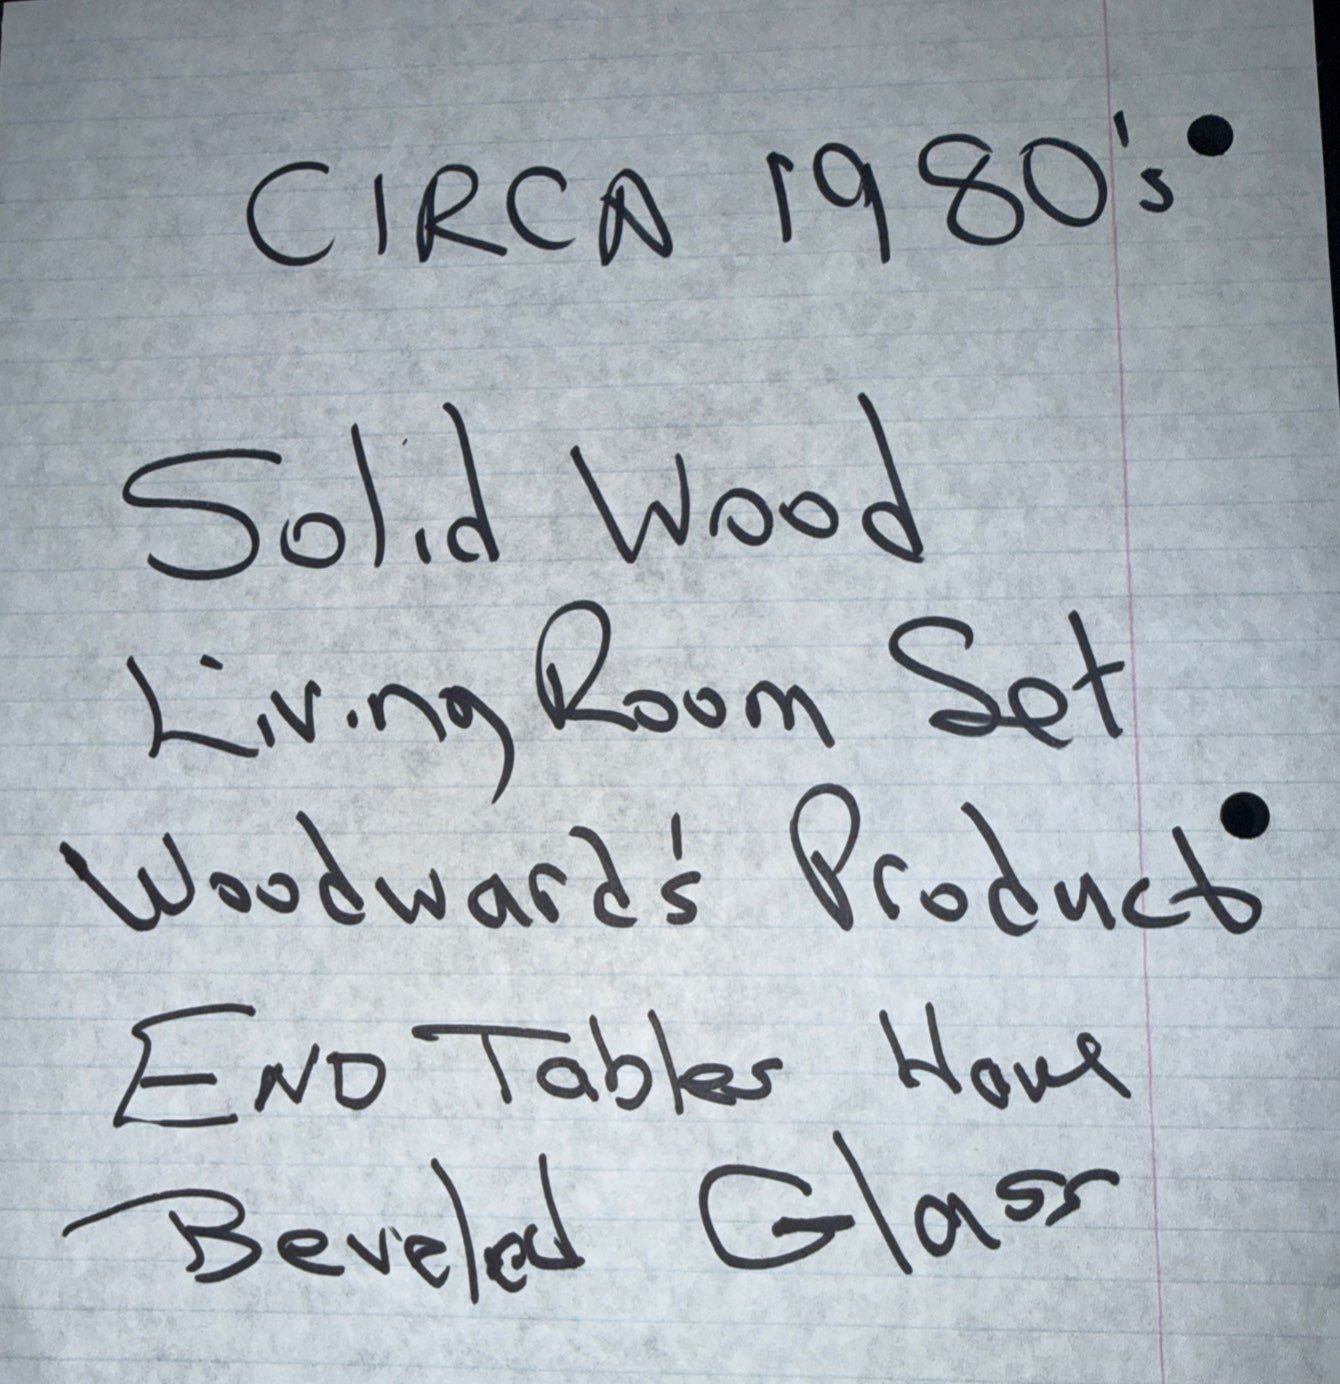 CIRCA 1980's
Solid Wood
Living Room Set
Woodward's Product
END Tables Have
Beveled Glass